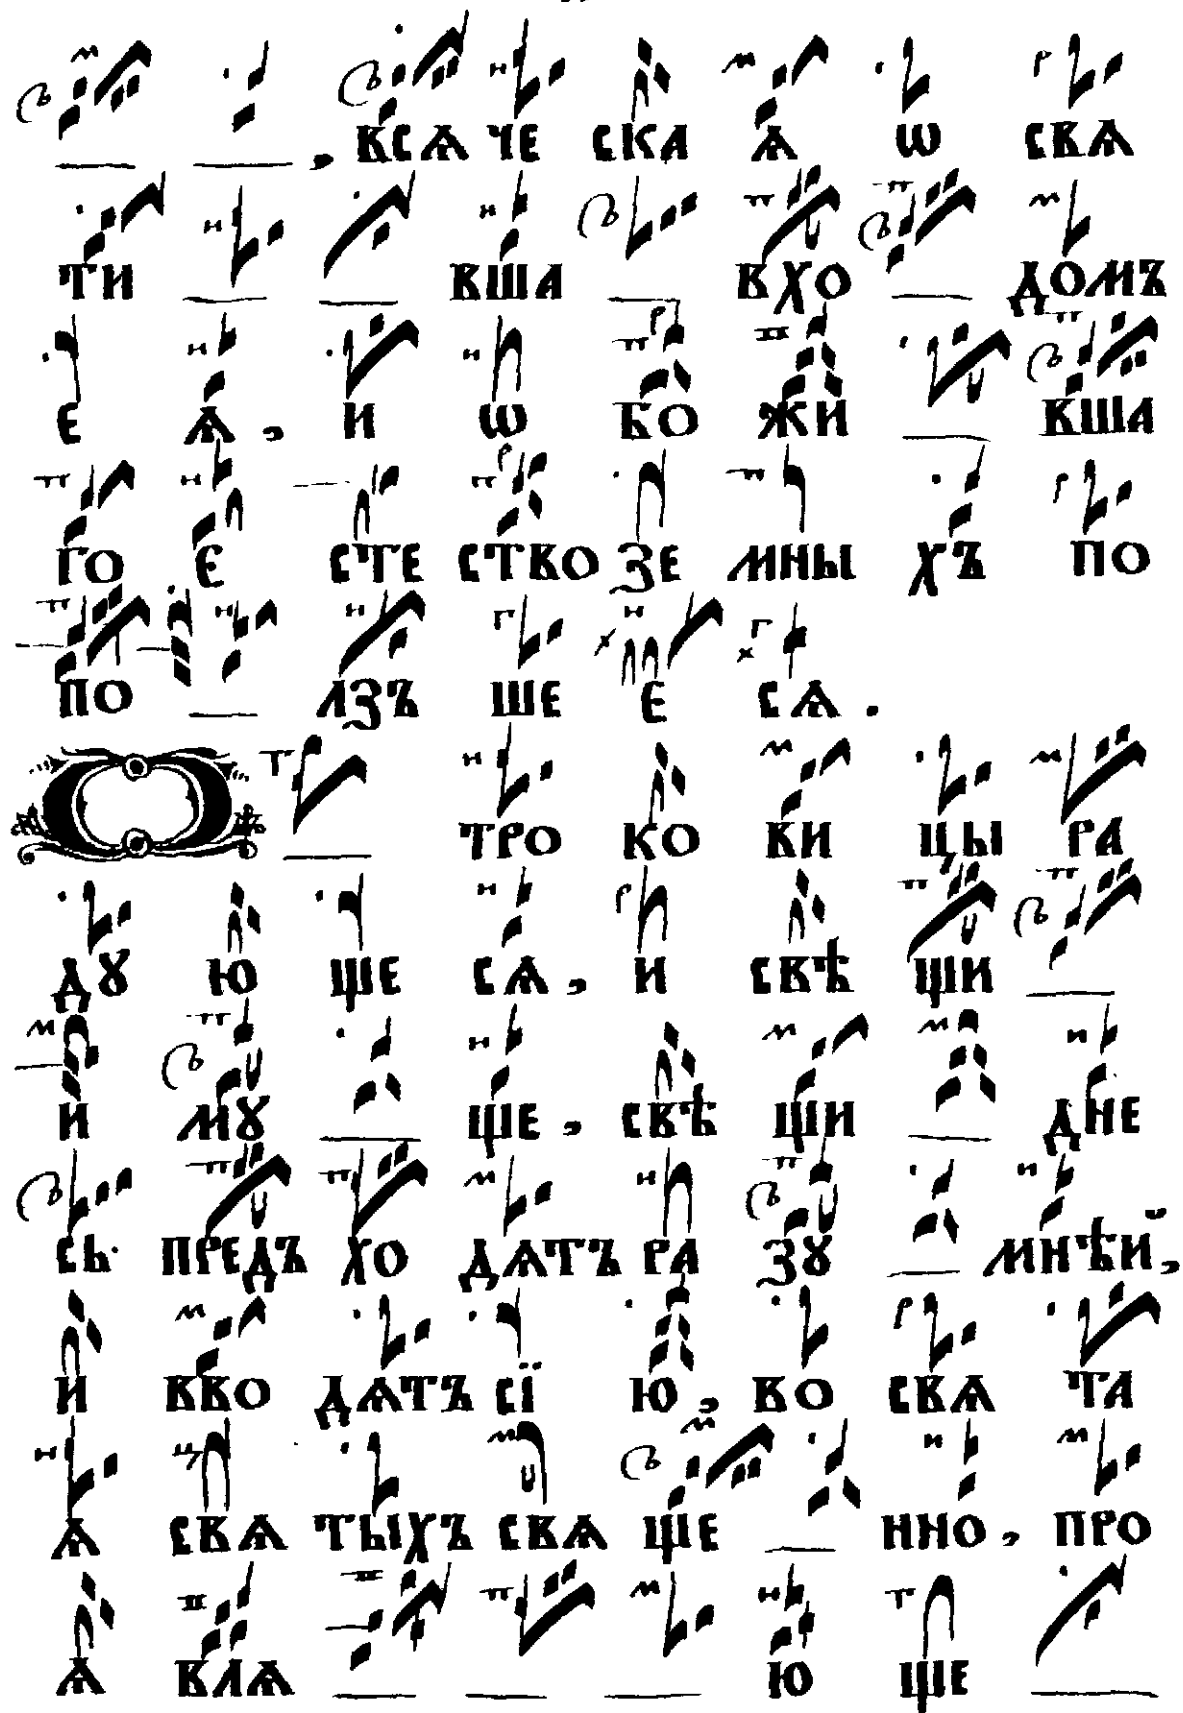 , ВСѦ ЧЕ СКА Ѧ Ѡ СВѦ
ТИ ВША ВХО ДОМЪ
Е Ѧ , И Ѡ БО ЖИ ВША
ГО Є СТЕ СТВО ЗЕ МНЫ ХЪ ПО
ПО ЛЗЪ ШЕ Е СѦ .
О ТРО КО ВИ ЦЫ РА
ДꙊ Ю ЩЕ СѦ , И СВѢ ЩИ
И МꙊ ЩЕ , СВѢ ЩИ ДНЕ
СЬ ПРЕДЪ ХО ДѦТЪ РА ЗꙊ МНѢЙ ,
И ВВО ДѦТЪ СЇ Ю , ВО СВѦ ТА
Ѧ СВѦ ТЫХЪ СВѦ ЩЕ ННО , ПРО
Ѧ ВЛѦ Ю ЩЕ